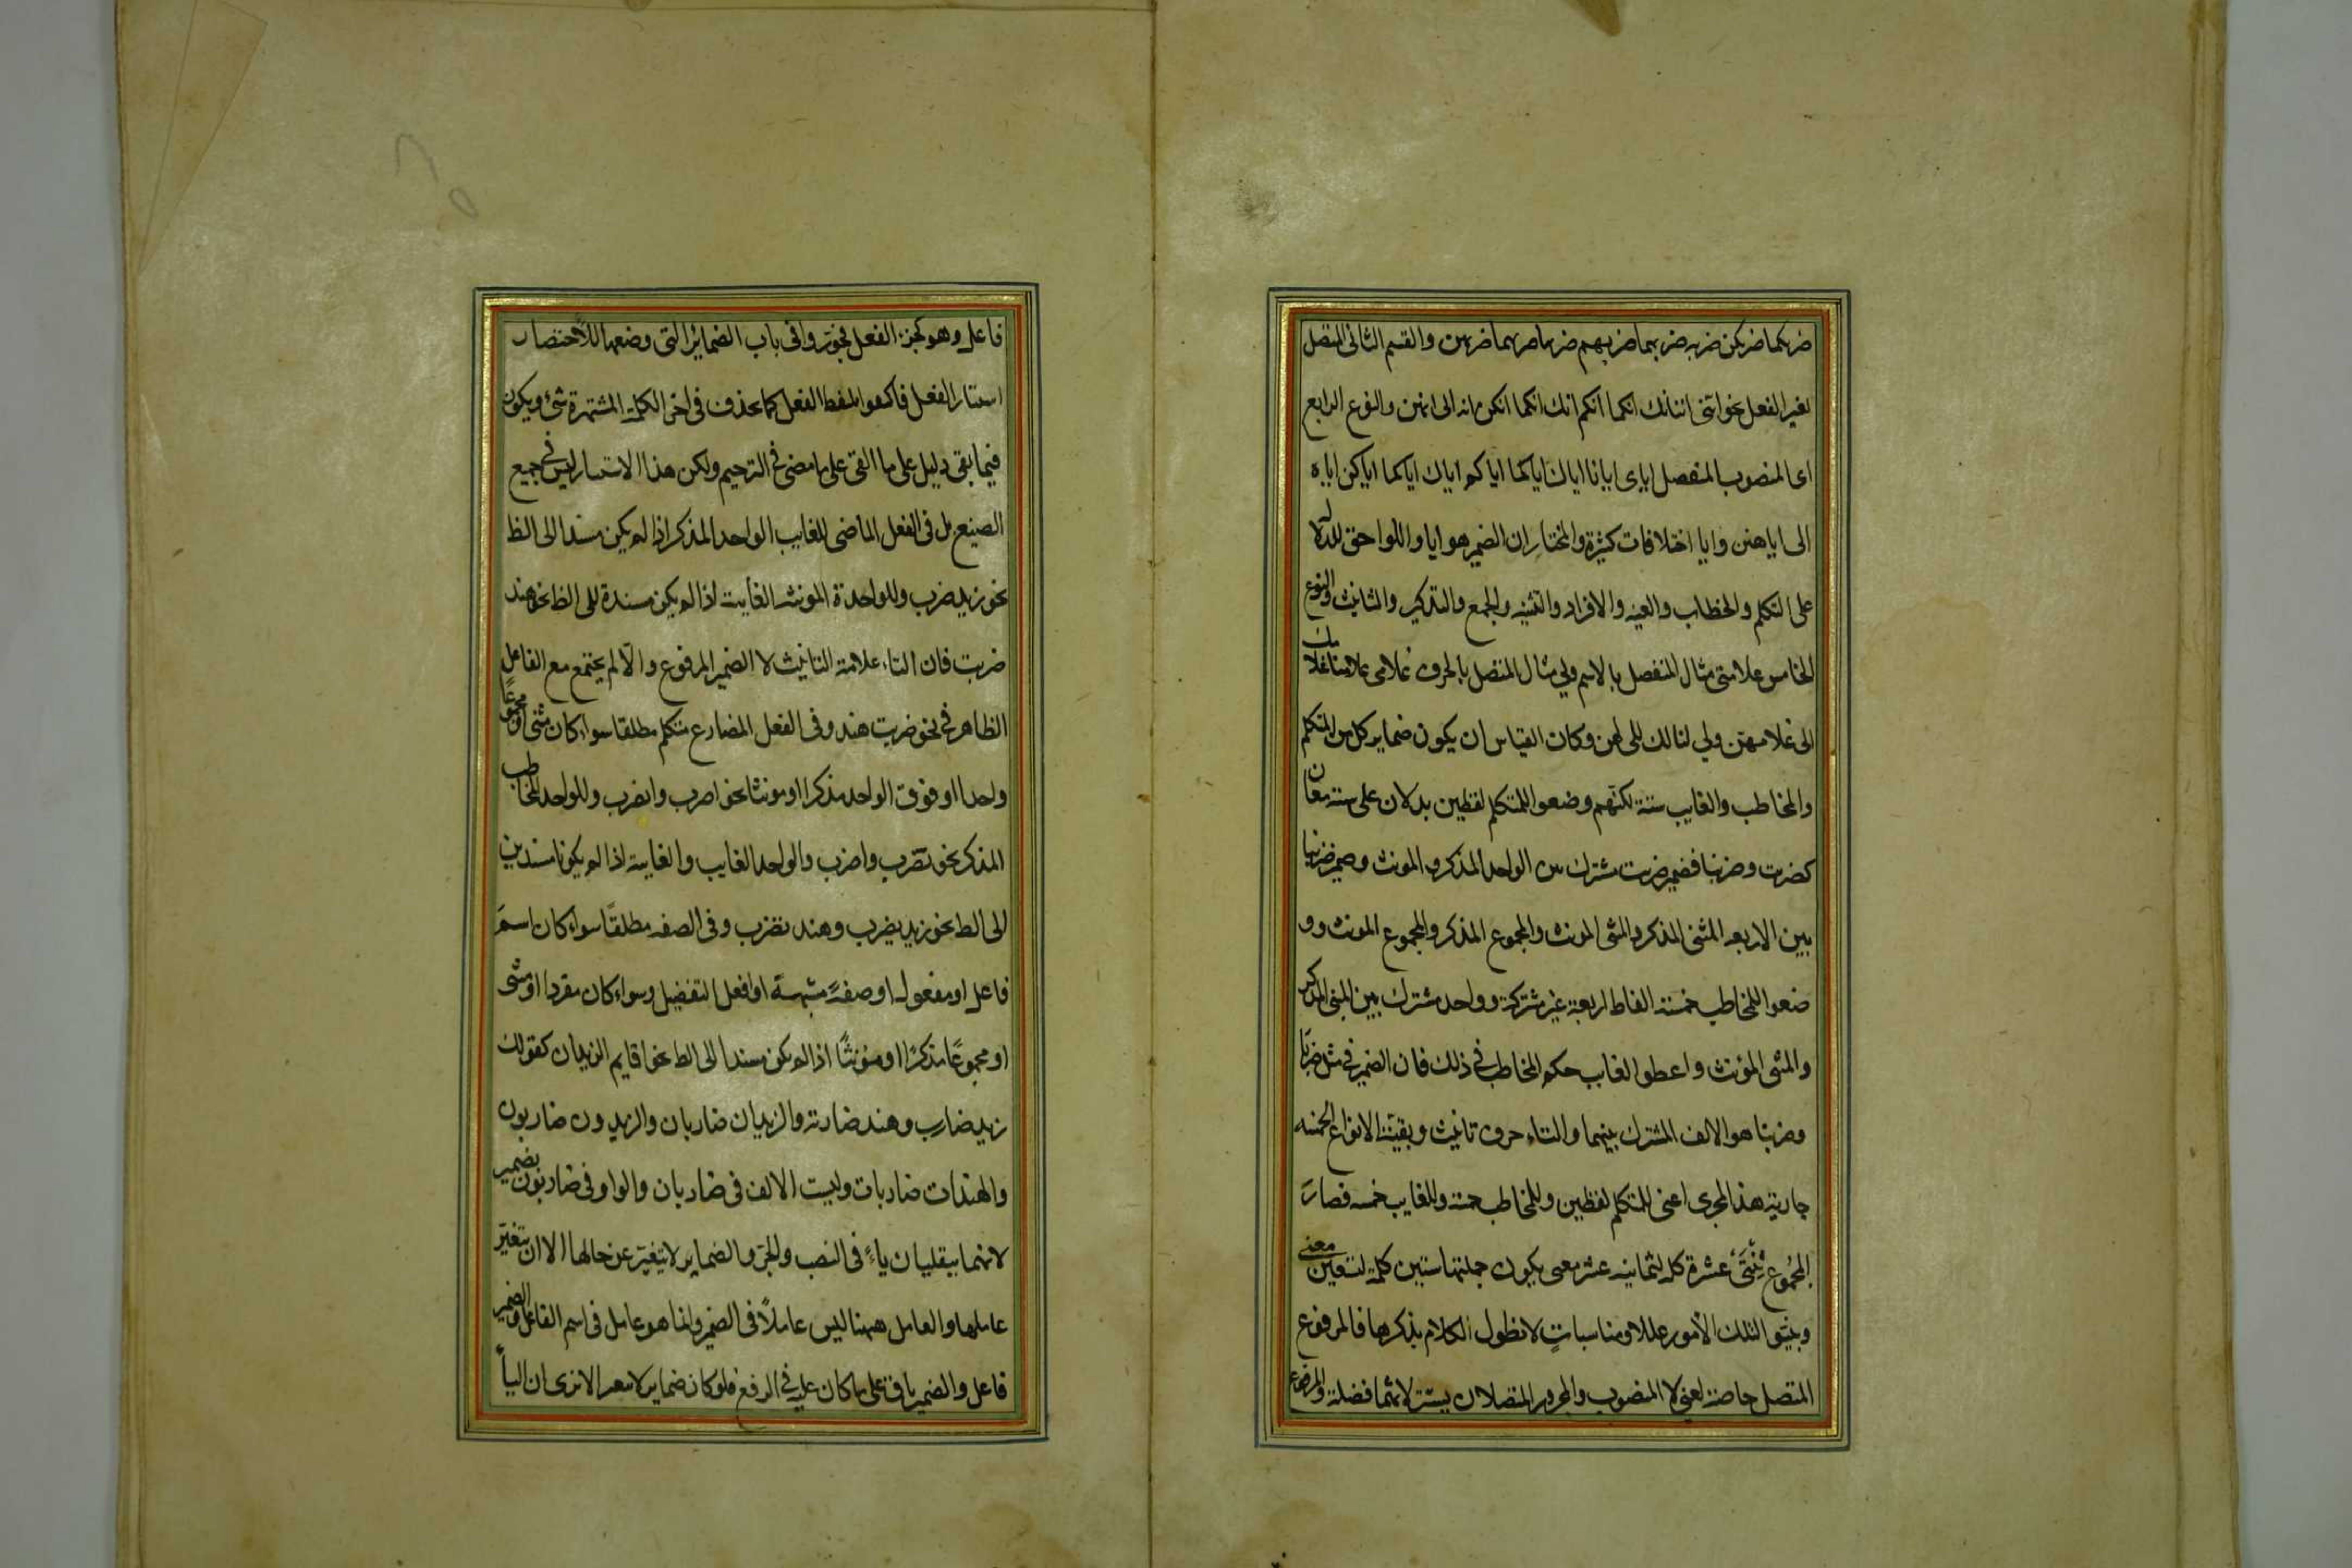 ضربكما ضربكن ضربه ضربهما ضربهم ضربها ضربهما ضربهن والقسم الثانى المتصل
لغير الفعل نحو اننى اننا انك انكما انكم انك انكما انكن انه الى انهن والنوع الرابع
اى المنصوب المنفصل اياى ايانا اياك اياكما اياكم اياك اياكما اياكن اياه
الى اياهن وايا اختلافات كثيرة والمختار ان الضمير هو ايا واللواحق للدلالة
على التكلم والخطاب والغيبه والافراد والتثنيه والجمع والتذكير والتانيث والنوع
الخامس علامتى مثال المتصل بالاسم ولي مثال المتصل بالحرف غلامى غلامنا غلامك
الى غلامهن ولي لنا لك الى لهن وكان القياس ان يكون ضماير كل من المتكلم
والمخاطب والغايب ستة لكنهم وضعوا للمتكلم لفظين يدلان على ستة معان
كضربت وضربنا فضمير ضربت مشترك بين الواحد المذكر والمونث وضمير ضربنا
بين الاربعه المثنى المذكر والمثنى المونث والمجموع المذكر والمجموع المونث وو
ضعوا للمخاطب خمسة الفاظ اربعة غير مشتركة وواحد مشترك بين المثنى المذكر
والمثنى المؤنث واعطوا الغايب حكم المخاطب فى ذلك فان الضمير فى مثل ضربا
وضربتا هو الالف المشترك بينهما والتاء حرف تانيث وبقية الانواع الخمسه
جارية هذا المجرى اعنى للمتكلم لفظين وللمخاطب خمسة وللغايب خمسه فصارت
المجموع اثنتى عشرة كلمة لثمانيه عشر معنى يكون جملتها ستين كلمة لتسعين معنى
وبينوا لتلك الامور عللا ومناسبات لا نطول الكلام بذكرها فالمرفوع
المتصل خاصة يعنى لا المنصوب والمجرور المتصلان يستتر لانهما فضلة والمرفوع
فاعل وهو كجزء الفعل فجوزوا فى باب الضماير التى وضعها للاختصار
استتار الفعل فاكتفوا بلفظ الفعل كما يحذف فى اخر الكلمة المشتهرة شئ ويكون
فيما بقى دليل على ما القى على ما مضى فى الترخيم ولكن هذا الاستتار ليس فى جميع
الصيغ بل فى الفعل الماضى للغايب الواحد المذكر اذا لم يكن مسندا الى الظ
نحو زيد ضرب وللواحدة المونثه الغايبة اذا لم يكن مسندة الى الظ نحو هند
ضربت فان التاء علامة التانيث لا الضمير المرفوع والا لم يجتمع مع الفاعل
الظاهر فى نحو ضربت هند وفى الفعل المضارع متكلم مطلقا سواء كان مثنى او مجموعًا
واحدا او فوق الواحد مذكرا او مونثا نحو اضرب ونضرب وللواحد المخاطب
المذكر نحو تضرب واضرب والواحد الغايب والغايبة اذا لم يكونا مسندين
الى الظ نحو زيد يضرب وهند تضرب وفى الصفه مطلقًا سواء كان اسم
فاعل او مفعول او صفةً مشبهة او افعل التفضيل وسواء كان مفردا او مثنى
او مجموعًا مذكرًا او مؤنثًا اذا لم يكن مسندا الى الظ نحو اقايم الزيدان كقولك
زيد ضارب وهند ضاربة والزيدان ضاربان والزيدون ضاربون
والهندات ضاربات وليست الالف فى ضاربان والواو فى ضاربون بضمير
لانهما ينقلبان ياءً فى النصب والجر والضماير لا يتغير عن حالها الا ان يتغير
عاملها والعامل ههنا ليس عاملاً فى الضمير وانما هو عامل فى اسم الفاعل والضمير
فاعل والضمير باق على ما كان عليه فى الرفع فلو كان ضماير لا تتغير الا ترى ان الياء